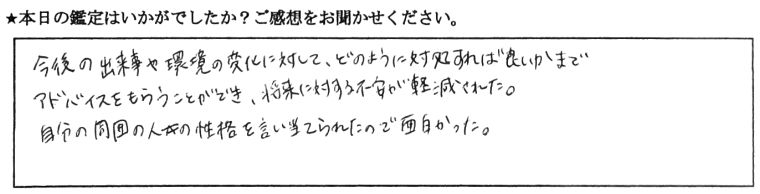 ★本日の鑑定はいかがでしたか？ご感想をお聞かせください。
今後の出来事や環境の変化に対して、どのように対処すれば良いかまで
アドバイスをもらうことができ、将来に対する不安が軽減された。
自分の周囲の人々の性格を言い当てられたので面白かった。